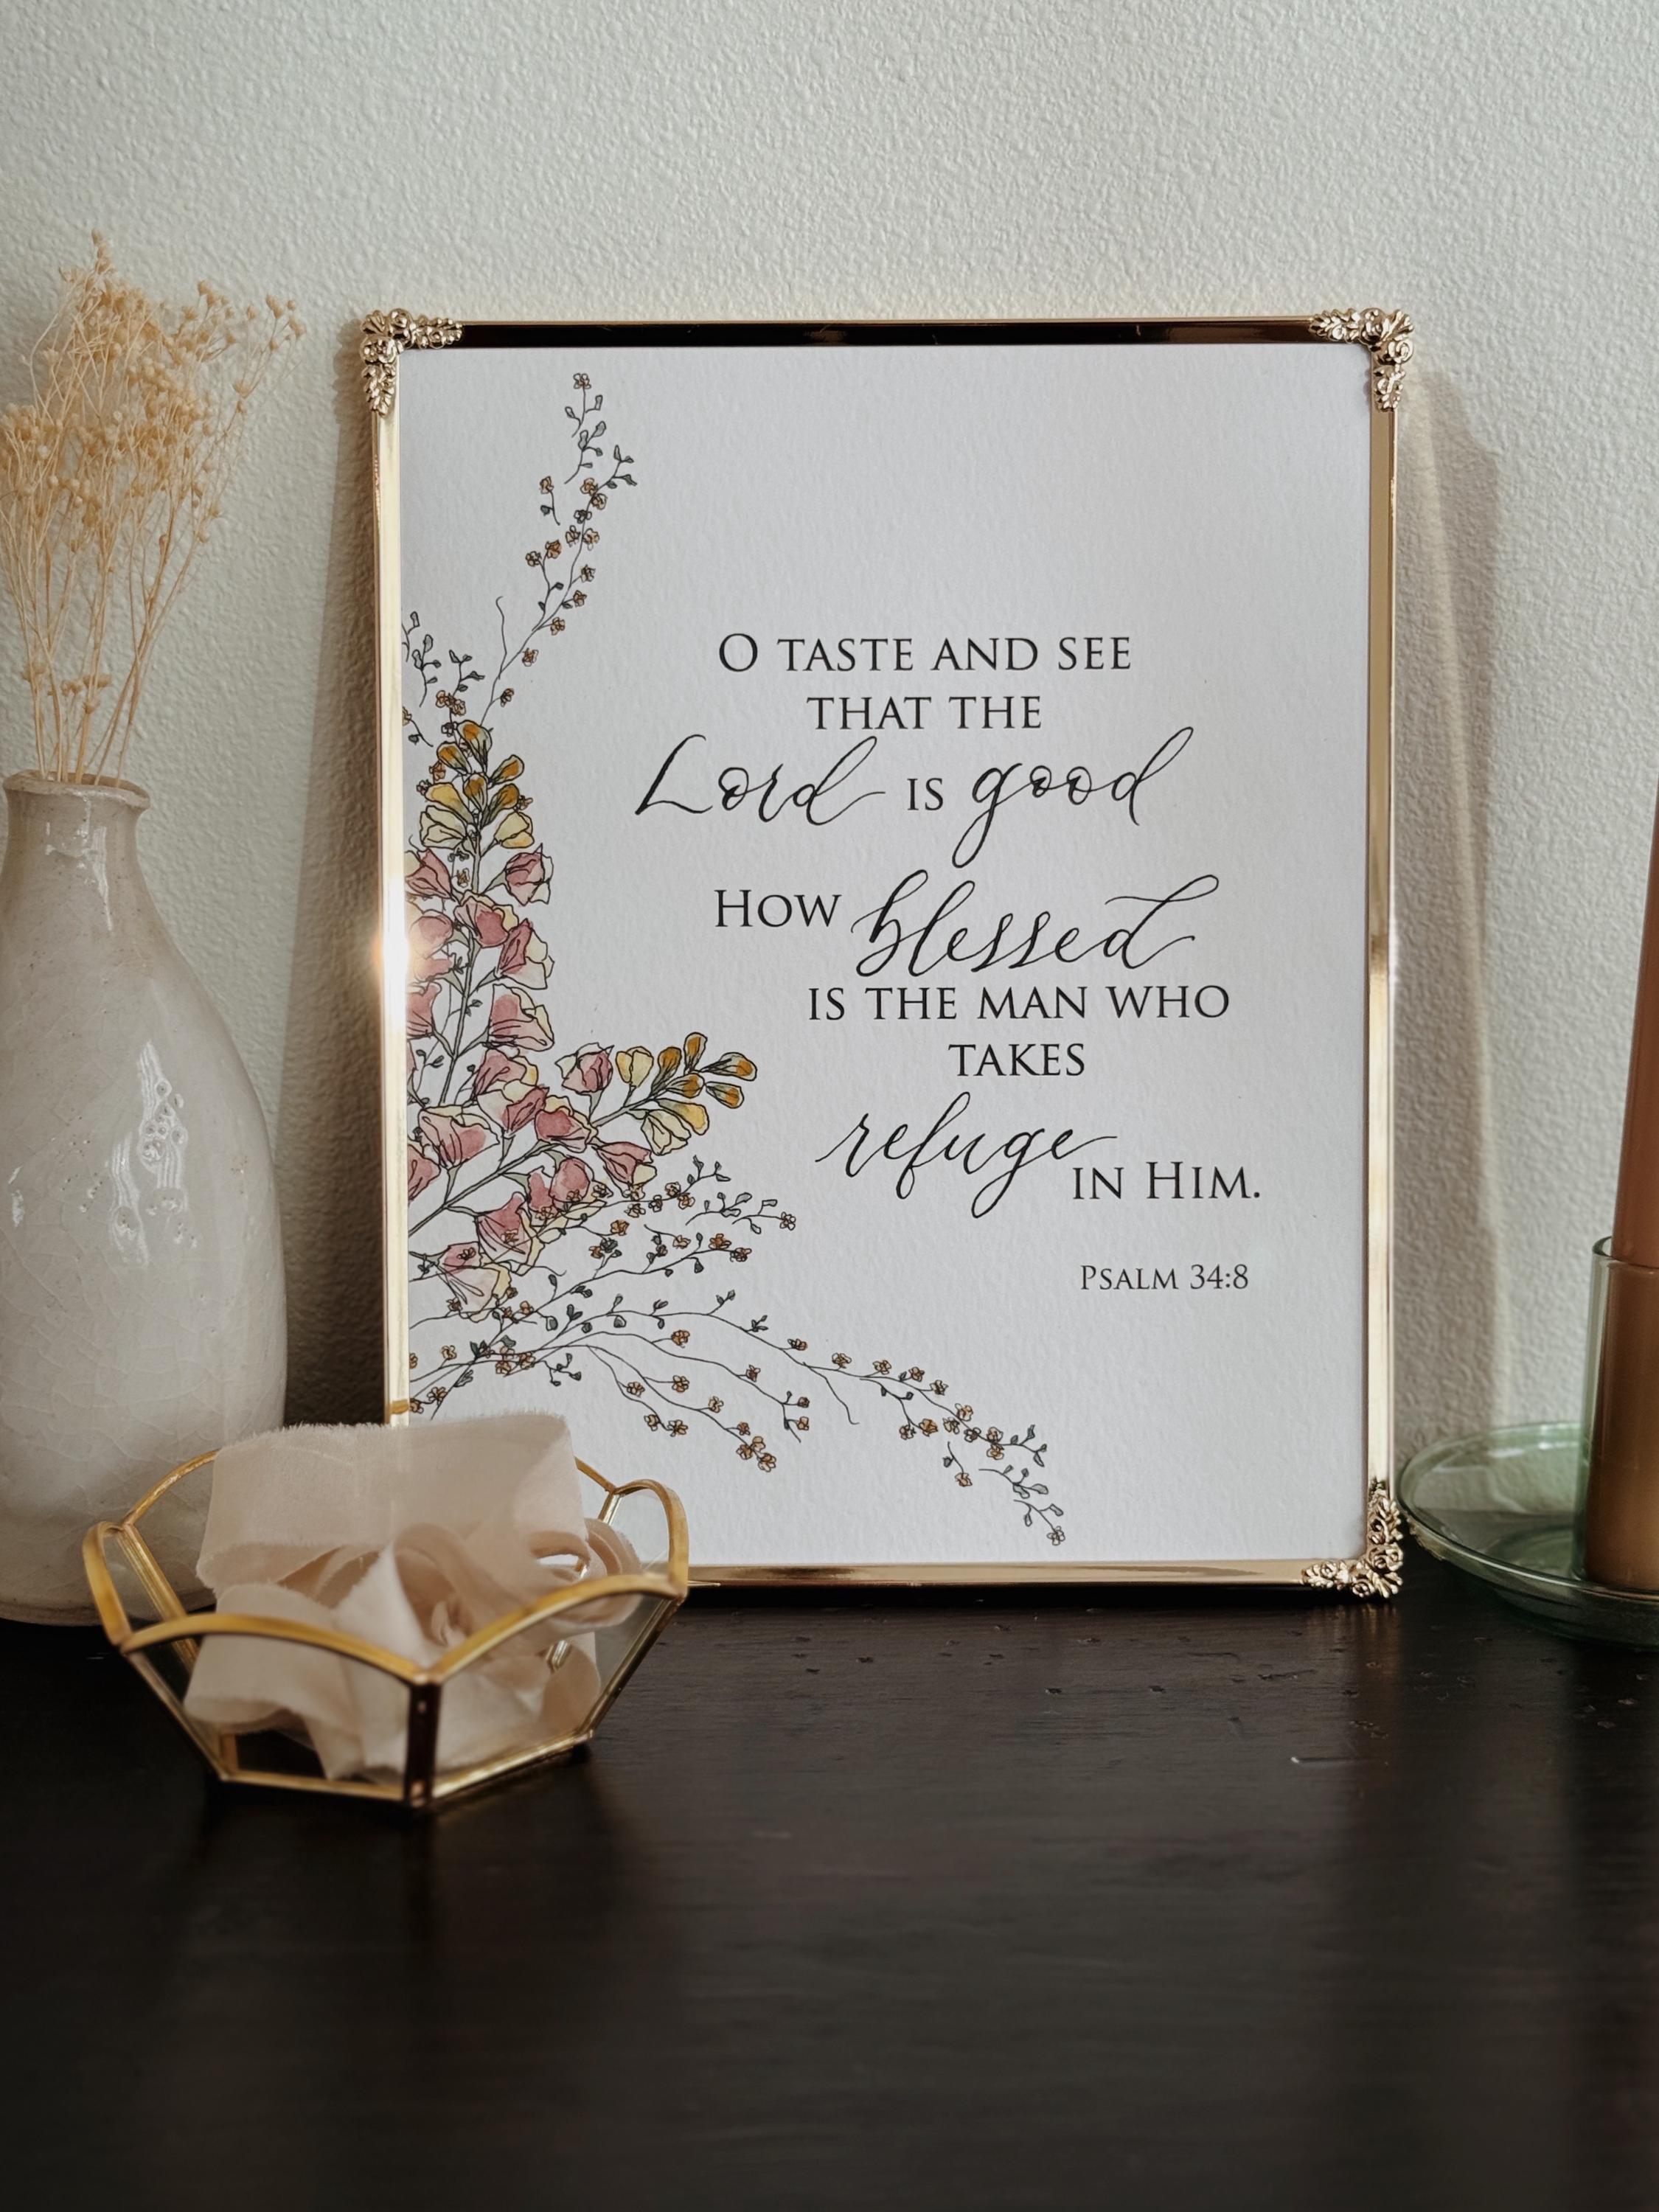 O TASTE AND SEE
THAT THE
Lord IS good
HOW blessed
IS THE MAN WHO
TAKES
refuge IN HIM.
PSALM 34:8